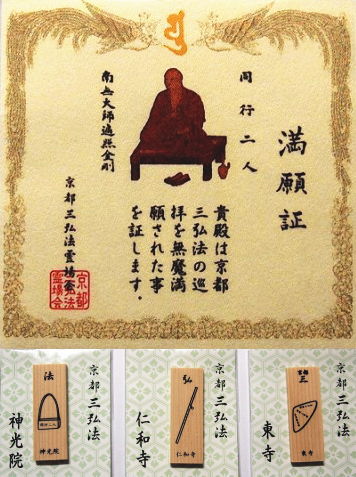 満願証
同行二人
南無大師遍照金剛
貴殿は京都
三弘法の巡
拝を無魔満
願された事
を証します。
京都三弘法霊場会
京都
三弘法
霊場会
京都三弘法
三
京都
東寺
東寺
京都三弘法
弘
仁和寺
仁和寺
京都三弘法
法
同行二人
神光院
神光院